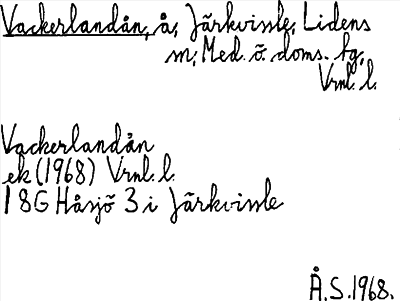 Vackerlandån, å, Järkvissle, Lidens
sn, Med. ö. doms. tg,
Vrnl. l.
Vackerlandån
ek (1968) Vrnl. l.
18G Håsjö 3 i Järkvissle
Å.S. 1968.